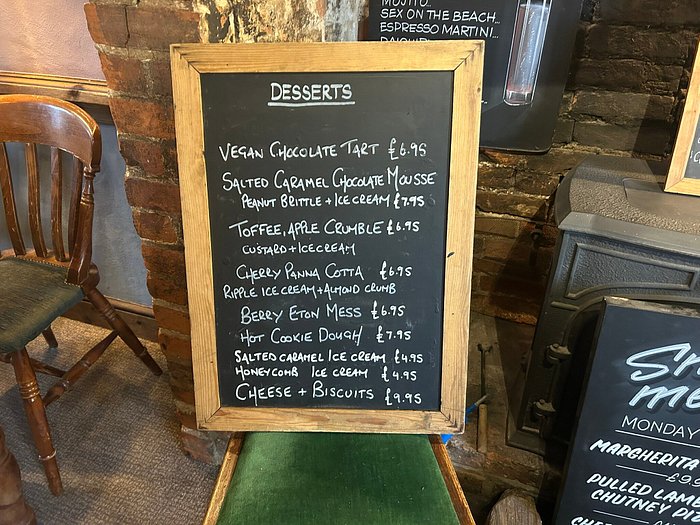 MOJITO...
SEX ON THE BEACH...
ESPRESSO MARTINI...
DESSERTS
VEGAN CHOCOLATE TART £6.95
SALTED CARAMEL CHOCOLATE MOUSSE
PEANUT BRITTLE + ICE CREAM £7.95
TOFFEE, APPLE CRUMBLE £6.95
CUSTARD + ICECREAM
CHERRY PANNA COTTA £6.95
RIPPLE ICE CREAM + ALMOND CRUMB
BERRY ETON MESS £6.95
HOT COOKIE DOUGH £7.95
SALTED CARAMEL ICE CREAM £4.95
HONEYCOMB ICE CREAM £4.95
CHEESE + BISCUITS £9.95
MONDAY
MARGHERITA
PULLED LAMB
CHUTNEY